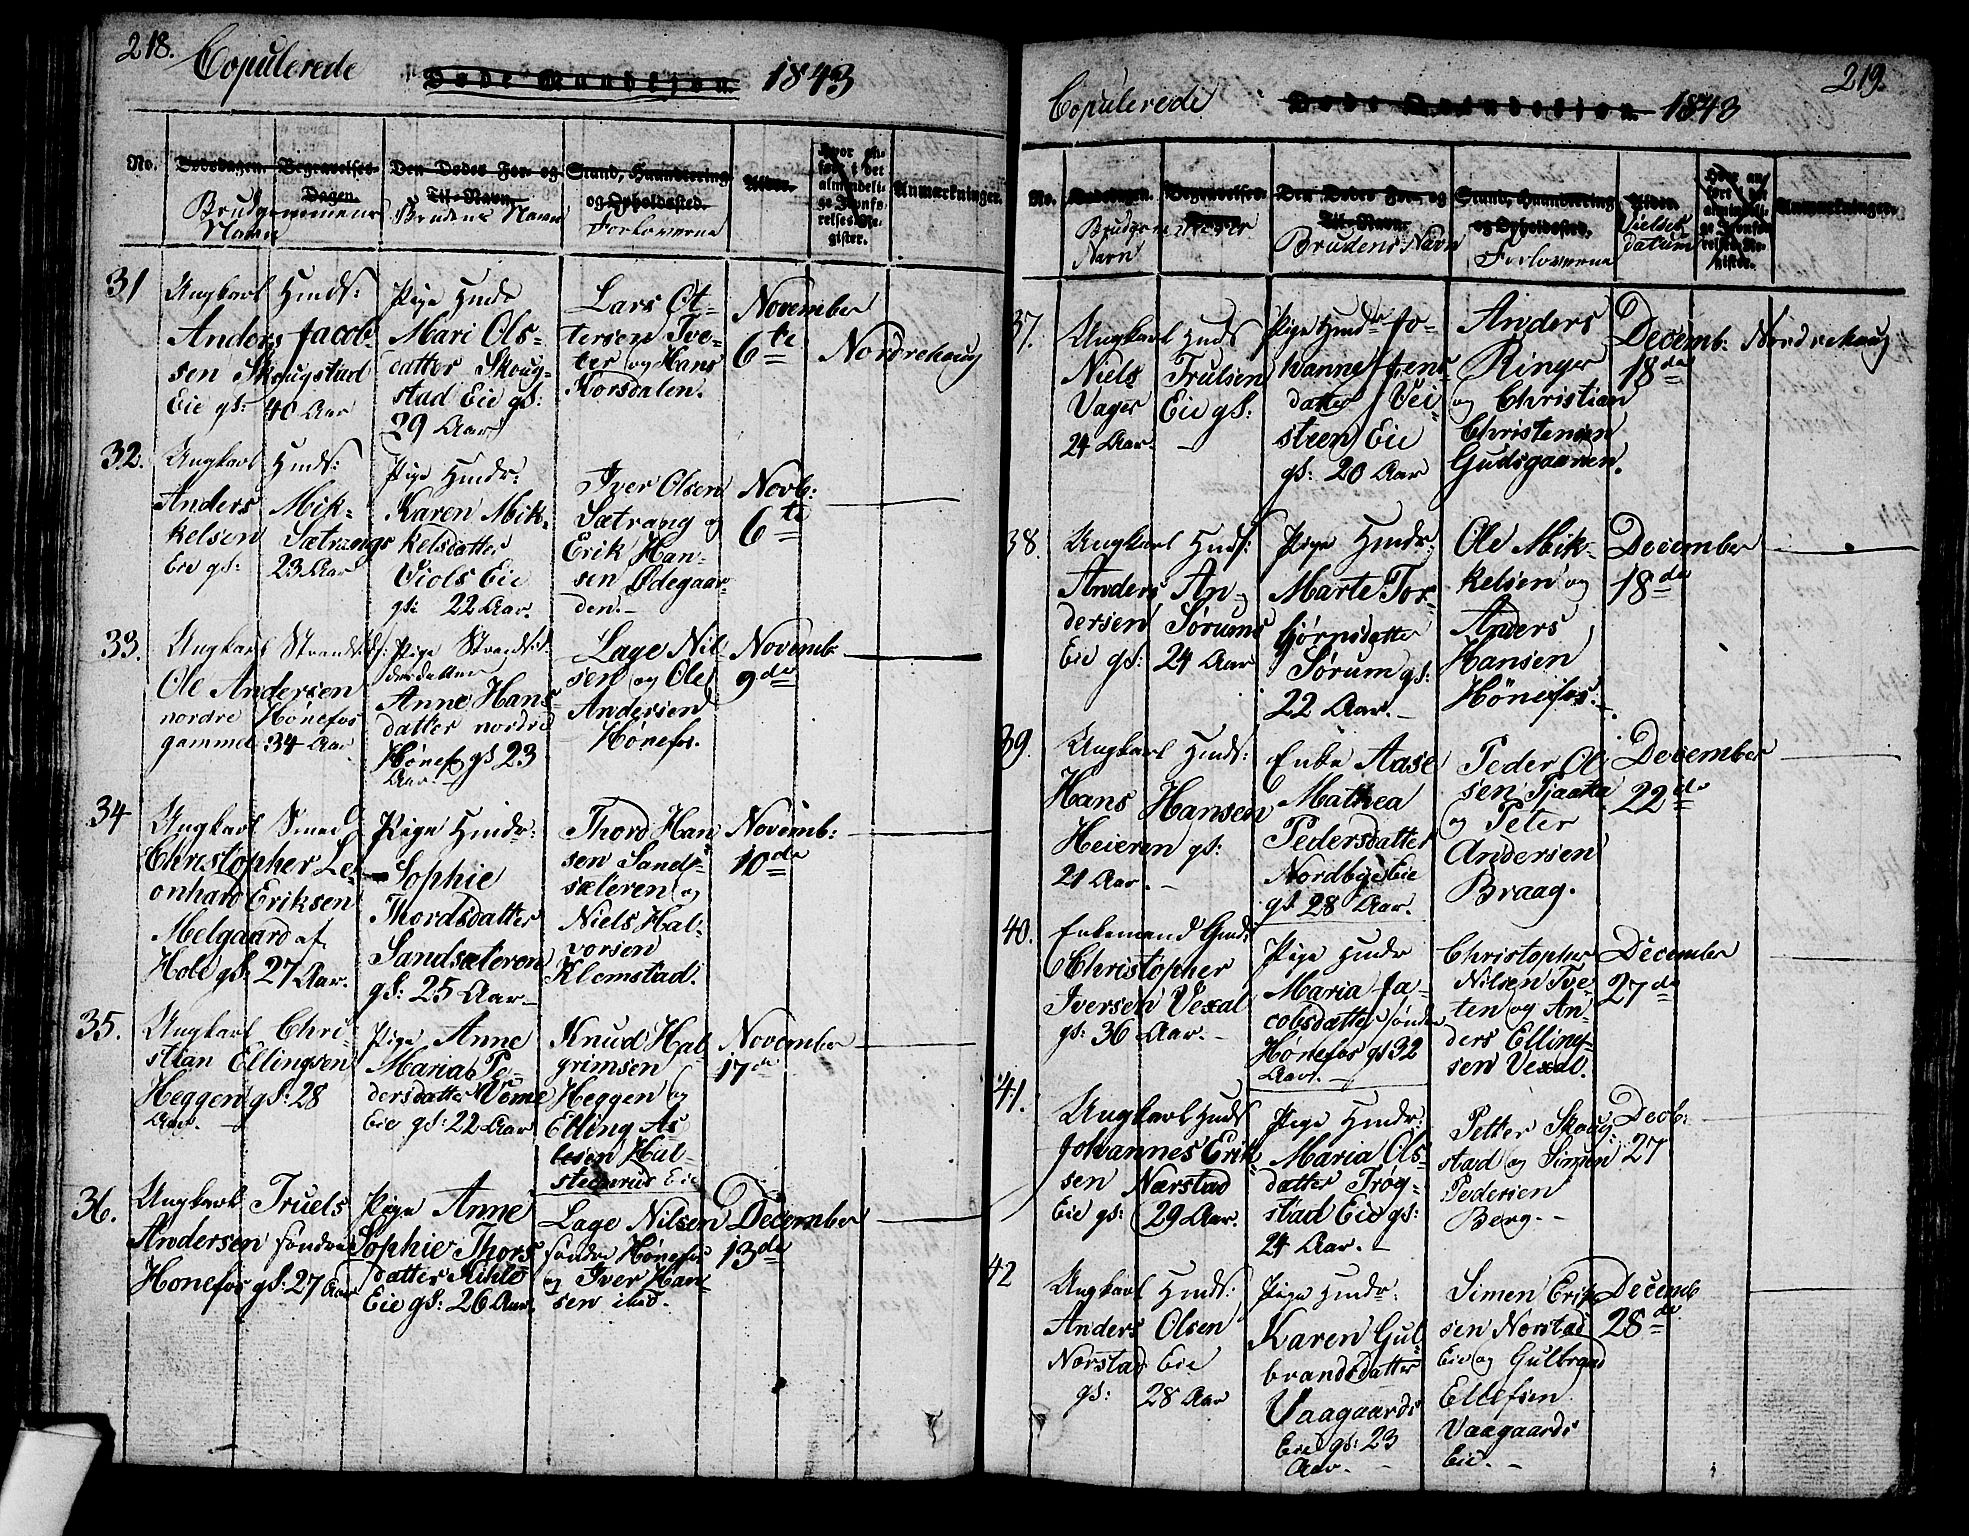 218. Copulerede Døde Mandkjøn. 1843
No.
Dødsdagen. Begravelses-Dagen.
Brudgommens Navn
Den Dødes For- og Til-Navn.
Brudens Navn
Stand, Haandtering og Opholdssted.
Forloverne
Alder.
Hvor an-
ført i det
almindeli-
ge Jevnfø-
relses-Re-
gister.
Anmærkninger.
31
Ungkarl Huusm:
Anders Jacob-
sen Skougstad
Eie gs: 40 Aar
Pige
Mari Ols-
datter Skoug-
stad Eie gs:
29 Aar
Lars Ot-
tersen Tve-
ter og Hans
Korsdalen.
November
6te
Nordrehaug
32.
Ungkarl
Anders Mik-
kelsen Sætrangs
Eie gs: 23 Aar
Pige
Karen Mik-
kelsdatter
Viols Eie
gs: 22 Aar.
Iver Olsen
Sætrang og
Erik Han-
sen Ødegaar-
den.-
Novb:
6te
33.
Ungkarl
Ole Andersen
nordre Hønefos
gammel 34 Aar
Pige
Anne Hans-
datter nordre
Hønefos gs 23
Aar.
Lage Nil-
sen og Ole
Andersen
Hønefos.
Novemb:
9de
34
Ungkarl Smed
Christopher Le-
onhard Eriksen
Melgaard af
Hole gs: 27 Aar.
Pige
Sophie
Thordsdatter
Sandsæteren
gs: 25 Aar
Thord Han
sen Sand-
sæteren og
Niels Hal-
vorsen
Klemstad.
Novemb:
10de
35.
Ungkarl Chri-
stian Ellingsen
Heggen gs: 28
Aar. -
Pige Anne
Maria Pe-
dersdatter Veme
Eie gs: 22 Aar
Knud Hal
grimsen
Heggen og
Elling As
lesen Hal-
steenrud Eie
November
17de
36.
Ungkarl Truels
Andersen søndre
Honefos gs: 27 Aar
Pige Anne
Sophie Thors
datter Kihle
Eie gs: 26 Aar.
Lage Nilsen
søndre Hønefos
og Iver Han-
sen ibid.
December
13de
Copulerede Døde Qvindekjøn. 1843 219.
No.
Dødsdagen. Begravelses-Dagen.
Brudgommens Navn
Den Dødes For- og Til-Navn.
Brudens Navn
Stand, Haandtering og Opholdssted.
Forloverne
Alder.
Vielses
datum
Hvor an-
ført i det
almindeli-
ge Jevnfø-
relses-Re-
gister.
Anmærkninger.
37.
Ungkarl
Niels Trulsen
Vager Eie gs:
24 Aar. -
Pige Jo-
hanne Jens
datter Vei-
steen Eie
gs: 20 Aar
Anders
Ringer
og Christian
Christensen
Gudsgaarden.
Decemb:
18de
Nordrehaug
38.
Ungkarl
Anders An-
dersen Sørums
Eie gs: 24 Aar
Pige
Marte Tor-
bjørnsdatter
Sørum gs:
22 Aar.-
Ole Mik-
kelsen og
Anders
Hansen
Hönefos.
December
18de
39.
Ungkarl
Hans Hansen
Heieren gs:
21 Aar. -
Enke Aase
Mathea
Pedersdatter
Nordbye Eie
gs 28 Aar.
Peder Ol
sen Tjaata
og Peter
Andersen
Braag.
December
22de
40.
Enkemand
Christopher
Iversen Vexal
gs: 36 Aar. -
Pige
Maria Ja-
cobsdatter søndre
Hønefos gs 32
Aar. -
Christopher
Nilsen Tve-
ten og An-
ders Elling-
sen Vexal.
December
27de
41.
Ungkarl
Johannes Erik
sen Nærstad
Eie gs: 29 Aar.
Pige
Maria Ols-
datter Trøg-
stad Eie gs:
24 Aar. -
Petter Skoug-
stad og Simen
Pedersen
Berg. -
Decb:
27
42
Ungkarl
Anders Olsen
Norstad Eie
gs: 28 Aar
Pige
Karen Gul-
brandsdatter
Vaagaards
Eie gs: 23
Aar. -
Simen Erik
sen Norstad
Eie og Gulbrand
Ellefsen
Vaagaards
Eie. -
Decemb
28de